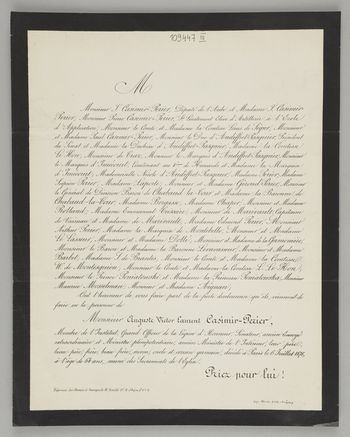 109447 III
M
Monsieur J. Casimir-Perier, Député de l'Aube et Madame J. Casimir-
Perier, Monsieur Pierre Casimir-Perier, S. Lieutenant Elève d'Artillerie à l'Ecole
d'Application, Monsieur le Comte et Madame la Comtesse Louis de Ségur, Monsieur
et Madame Paul Casimir-Perier, Monsieur le Duc d'Audiffret-Pasquier, Président
du Sénat et Madame la Duchesse d'Audiffret-Pasquier, Madame la Comtesse
Le Hon, Monsieur de Vaux, Monsieur le Marquis d'Audiffret-Pasquier, Monsieur
le Marquis d'Imécourt, Lieutenant au de Hussards et Madame la Marquise
d'Imécourt, Mademoiselle Nicole d'Audiffret-Pasquier, Madame Perier, Madame
Perier, Madame Laporte, Monsieur et Madame Perier, Monsieur
le Général de Division Baron de Chabaud la Tour et Madame la Baronne de
Chabaud-la-Tour, Madame Bergasse, Madame Chaper, Monsieur et Madame
Madame Monsieur de Capitaine
de Vaisseau et Madame de Madame Edmond Perier, Monsieur
Arthur Perier, Madame la Marquise de Montebello, Monsieur et Madame
Le Monsieur et Madame Dollé, Monsieur et Madame de la
Monsieur le Baron et Madame la Baronne Monsieur et Madame
Barbet, Madame S. de Madame le Comte et Madame la Comtesse
W. de Montesquiou, Monsieur le Comte et Madame la Comtesse L. Le Hon,
Monsieur le Prince Poniatowski et Madame la Princesse Poniatowska, Monsieur
Maurice et Madame
Ont l'honneur de vous faire part de la perte douloureuse qu'ils viennent de
faire en la personne de
Monsieur Auguste Victor Laurent Casimir-Perier,
Membre de l'Institut, Grand Officier de la Légion d'Honneur, Sénateur, ancien Envoyé
extraordinaire et Ministre plénipotentiaire, ancien Ministre de l'Intérieur, leur père,
beau-père, frère, beau-frère, oncle et cousin-germain, décédé à Paris le 6 Juillet 1876,
à l'âge de 64 ans, muni des Sacrements de l'Eglise.
Priez pour lui!